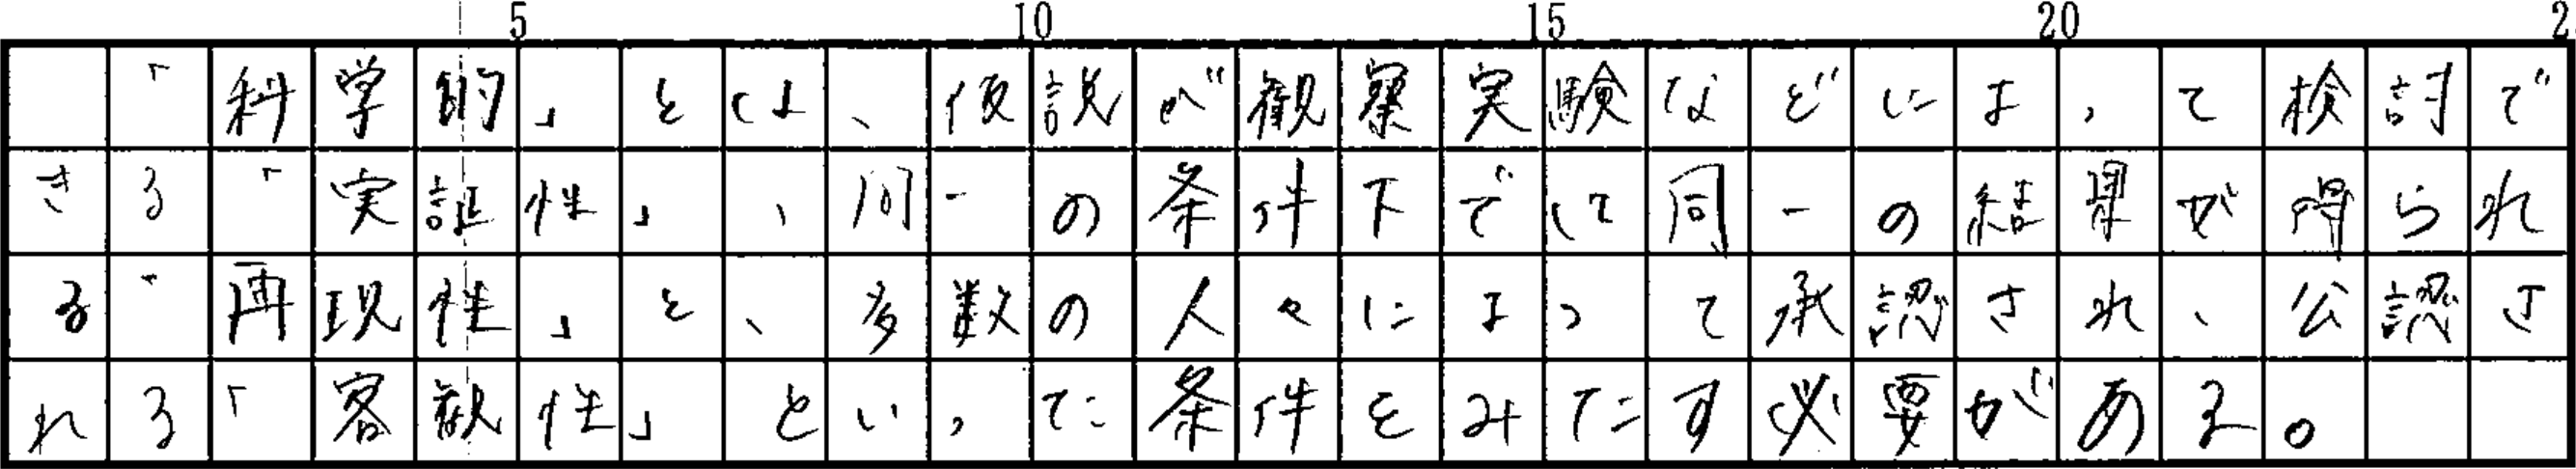 5 10 15 20 2
「科学的」とは、仮説が観察実験などによって検討で
きる「実証性」、同一の条件下でて同一の結果が得られ
る「再現性」と、多数の人々によって承認され、公認さ
れる「客観性」といった条件をみたす必要がある。